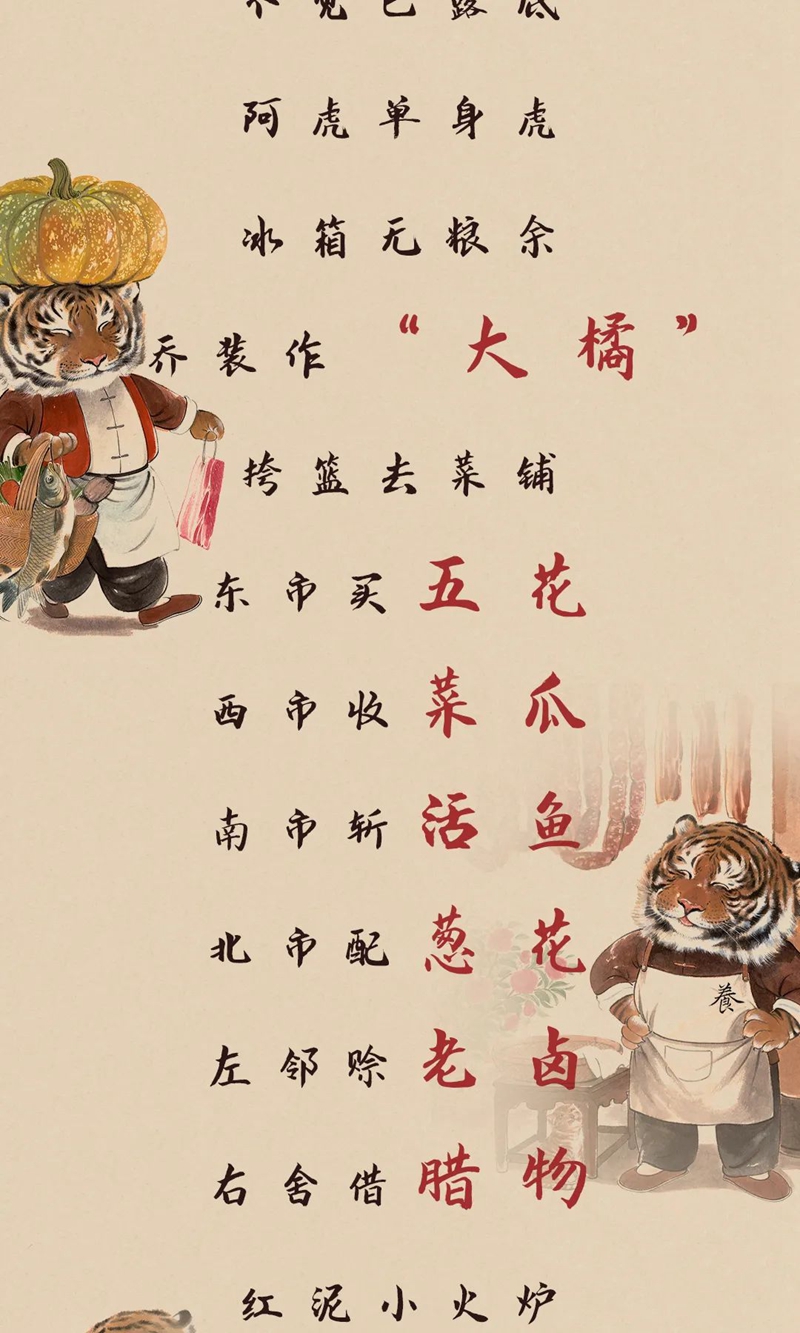 不觉已露底
阿虎单身虎
冰箱无粮余
乔装作“大橘”
挎篮去菜铺
东市买五花
西市收菜瓜
南市斩活鱼
北市配葱花
養
左邻赊老卤
右舍借腊物
红泥小火炉